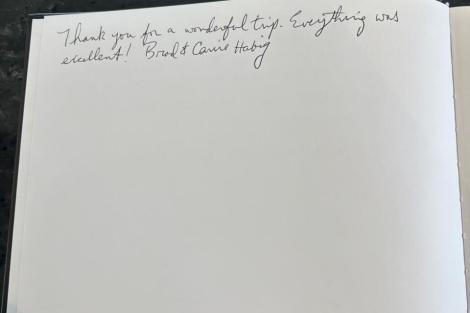 Thank you for a wonderful trip. Everything was
excellent! Brad & Carrie Habig